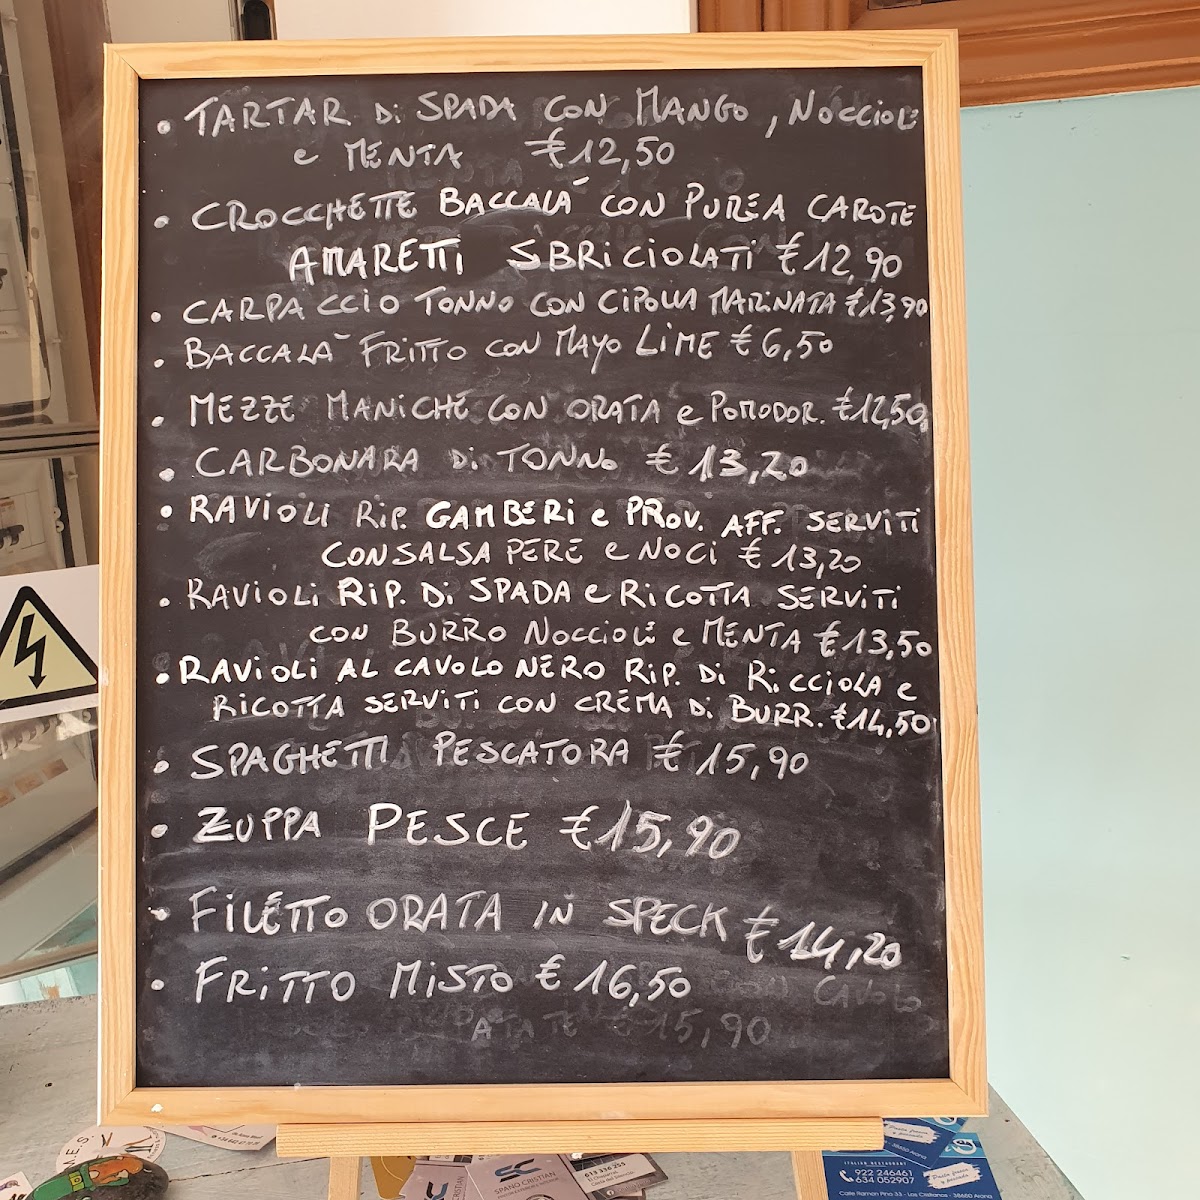 • TARTAR Di SPADA CON MANGO, NOCCIOLE
e MENTA €12,50
• CROCCHETTE BACCALÀ CON PUREA CAROTE
AMARETTi SBRICIOLATI €12,90
• CARPACCIO TONNO CON CIPOLLA MARINATA €13,90
• BACCALÀ FRITTO CON MAYO LIME €6,50
• MEZZE MANICHE CON ORATA e POMODOR. €12,50
• CARBONARA Di TONNO €13,20
• RAVIOLI RIP. GAMBERI e PROV. AFF. SERVITI
CON SALSA PERE e NOCI €13,20
• RAVIOLI RIP. Di SPADA e RICOTTA SERVITI
CON BURRO NOCCIOLE e MENTA €13,50
• RAVIOLI AL CAVOLO NERO RIP. Di RICCIOLA e
RICOTTA SERVITI CON CREMA Di BURR. €14,50
• SPAGHETTI PESCATORA €15,90
• ZUPPA PESCE €15,90
• FILETTO ORATA IN SPECK €14,20
• FRITTO MISTO €16,50
CON CAVOLO
15,90
M.E.S.
SC
SPANO CRISTIAN
CRISTIAN
613 336 255
ITALIAN RESTAURANT
922 246461
634 052907
Pasta fresca
e pescado
Calle Ramon Pino 33 - Los Cristianos - 38650 Arona
38650 Arona